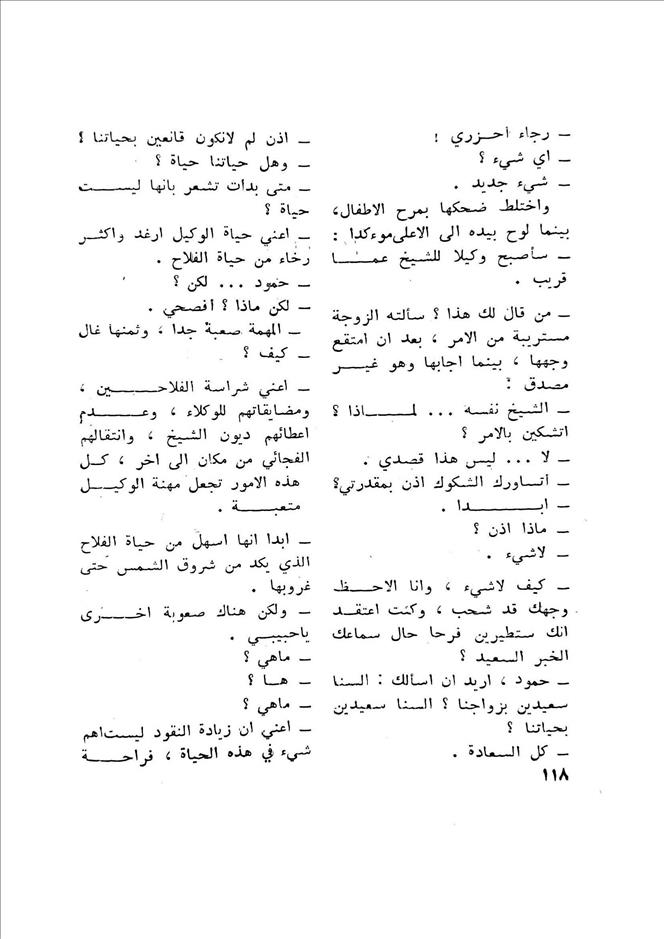 ـ رجاء احزري !
ـ اي شيء ؟
ـ شيء جديد .
واختلط ضحكها بمرح الاطفال،
بينما لوح بيده الى الاعلى موءكدا :
ـ سأصبح وكيلا للشيخ عما
قريب .
ـ من قال لك هذا ؟ سألته الزوجة
مستريبة من الامر ، بعد ان امتقع
وجهها ، بينما اجابها وهو غير
مصدق :
ـ الشيخ نفسه ... لماذا ؟
اتشكين بالامر ؟
ـ لا ... ليس هذا قصدي .
ـ أتساورك الشكوك اذن بمقدرتي؟
ـ ابدا .
ـ ماذا اذن ؟
ـ لاشيء .
ـ كيف لاشيء ، وانا الاحظ
وجهك قد شحب ، وكنت اعتقد
انك ستطيرين فرحا حال سماعك
الخبر السعيد ؟
ـ حمود ، اريد ان اسألك : السنا
سعيدين بزواجنا ؟ السنا سعيدين
بحياتنا ؟
ـ كل السعادة .
ـ اذن لم لانكون قانعين بحياتنا ؟
ـ وهل حياتنا حياة ؟
ـ متى بدات تشعر بانها ليست
حياة ؟
ـ اعني حياة الوكيل ارغد واكثر
رخاء من حياة الفلاح .
ـ حمود ... لكن ؟
ـ لكن ماذا ؟ أفصحي .
ـ المهمة صعبة جدا ، وثمنها غال
ـ كيف ؟
ـ اعني شراسة الفلاحين ،
ومضايقاتهم للوكلاء ، وعدم
اعطائهم ديون الشيخ ، وانتقالهم
الفجائي من مكان الى اخر ، كل
هذه الامور تجعل مهنة الوكيل
متعبة .
ـ ابدا انها اسهل من حياة الفلاح
الذي يكد من شروق الشمس حتى
غروبها .
ـ ولكن هناك صعوبة اخرى
ياحبيبي .
ـ ماهي ؟
ـ ها ؟
ـ ماهي ؟
ـ اعني ان زيادة النقود ليست اهم
شيء في هذه الحياة ، فراحة
١١٨